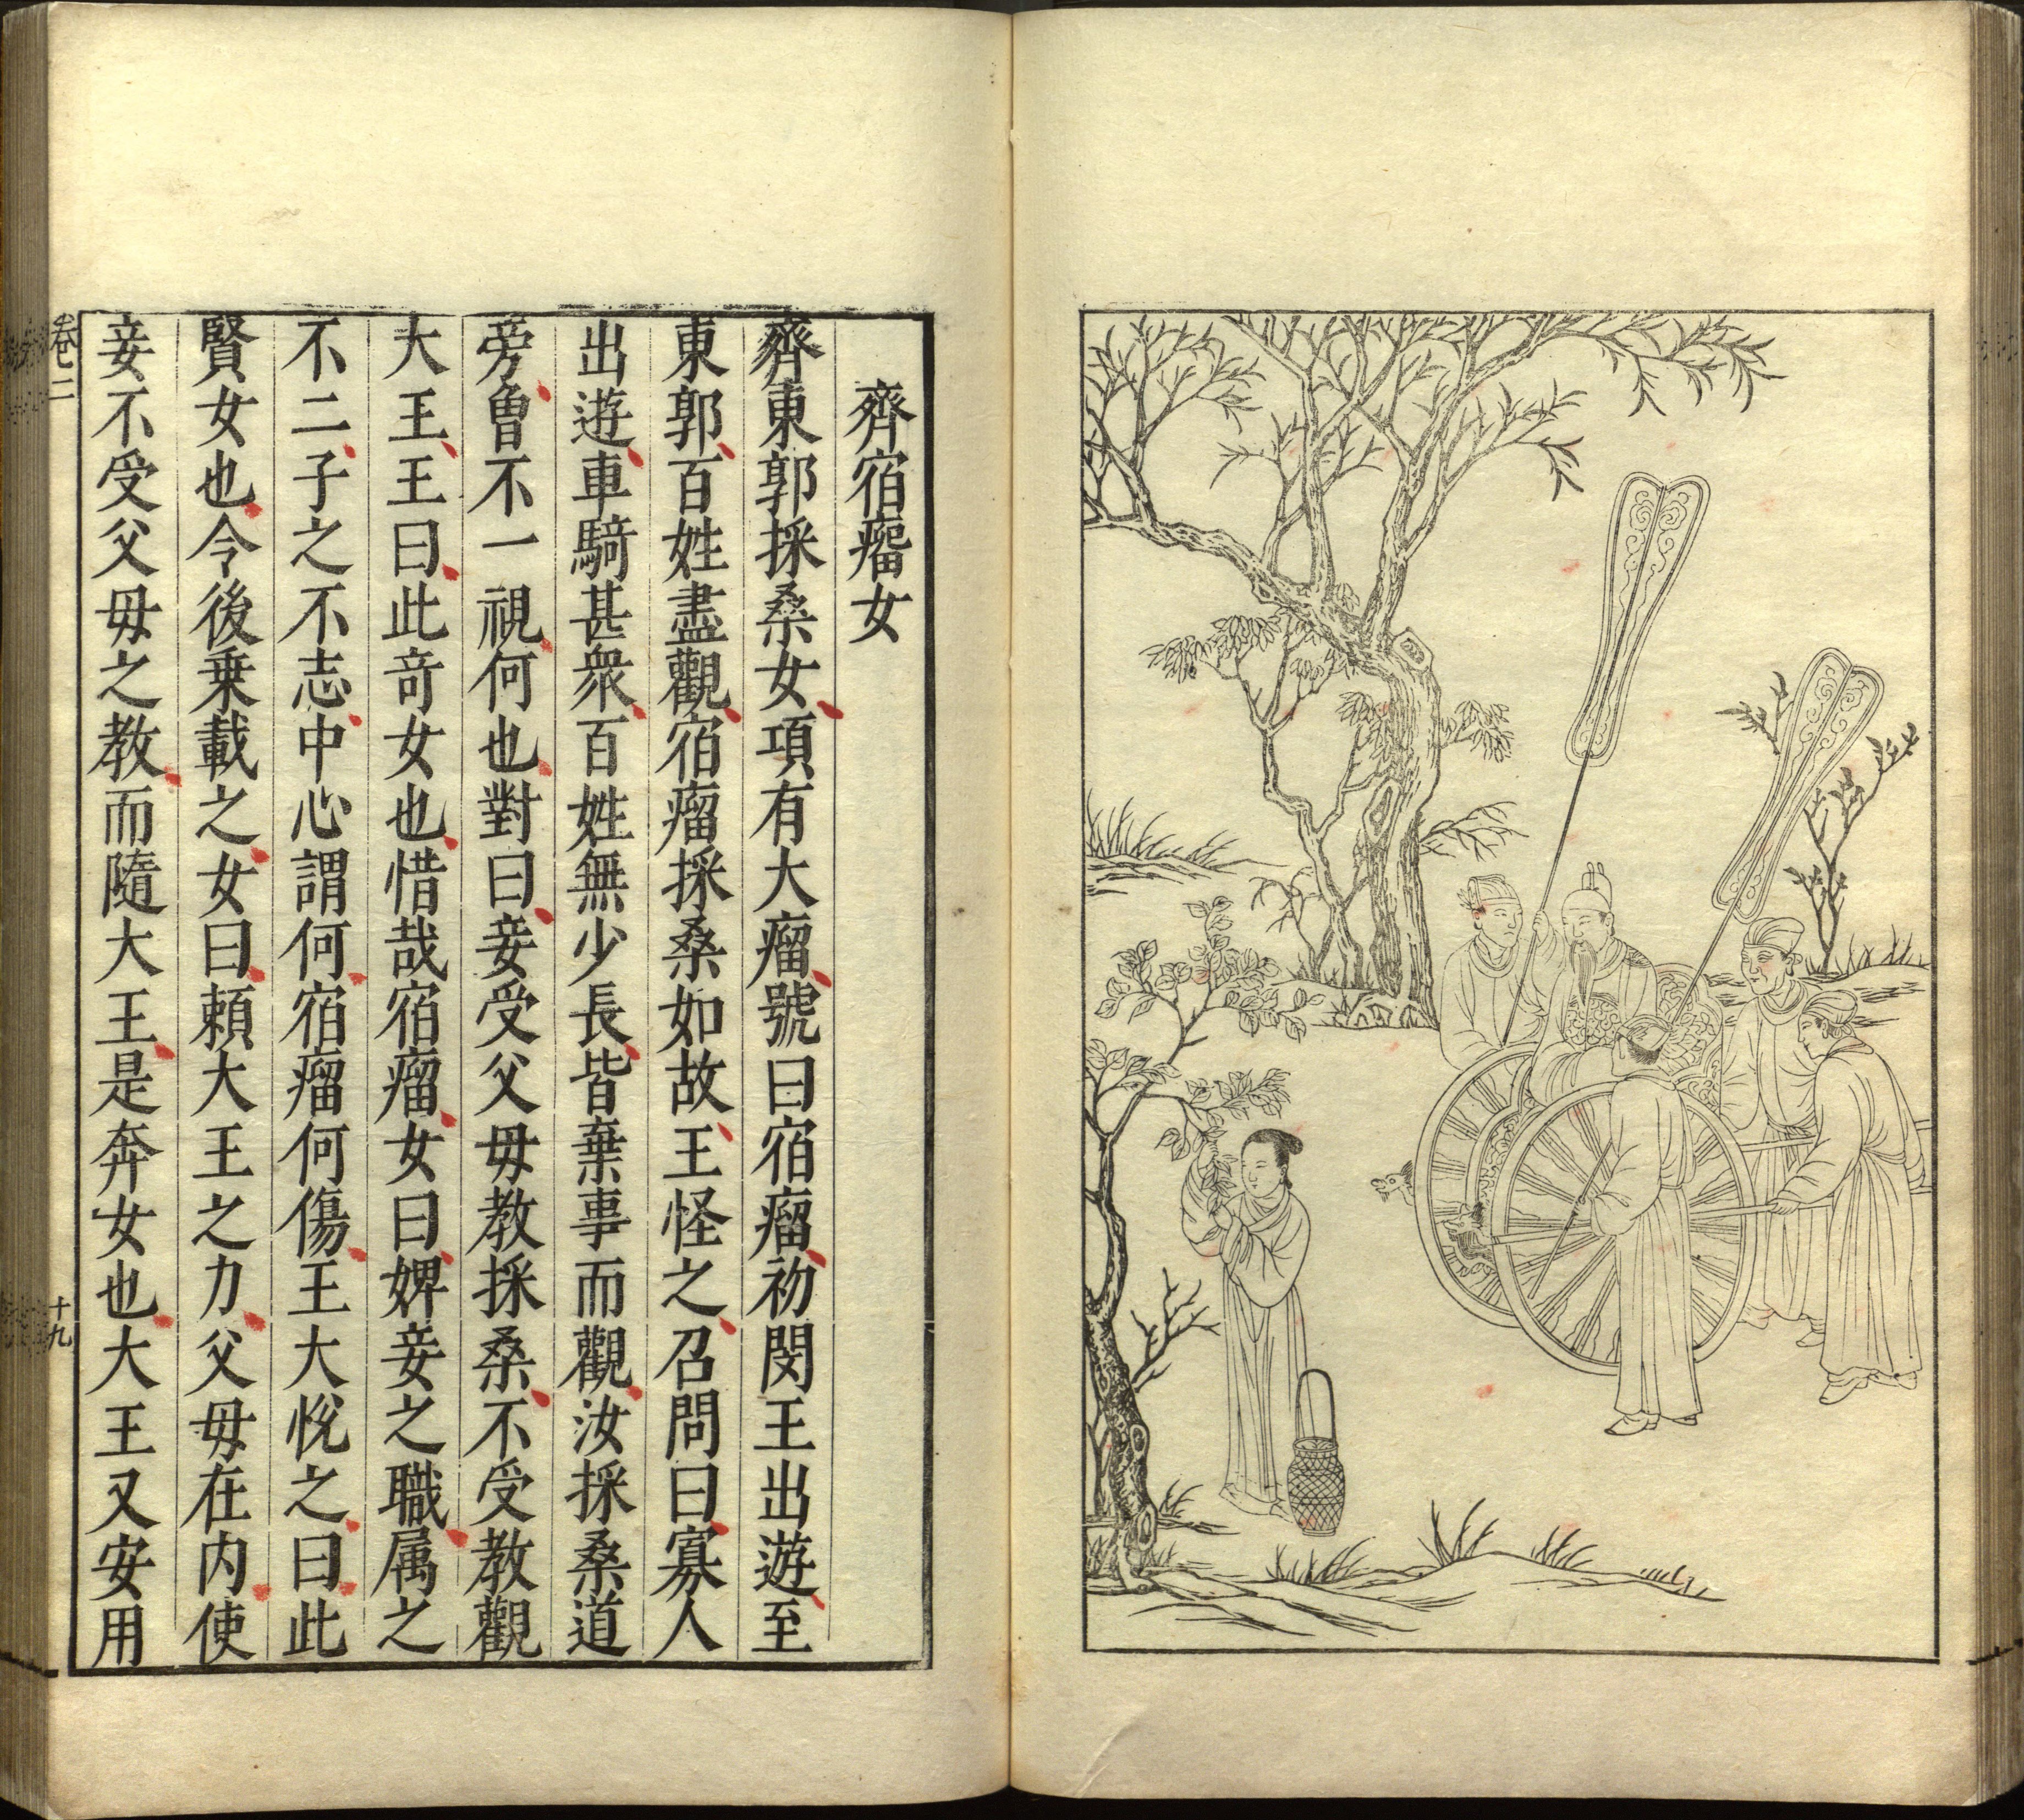 齊宿瘤女
齊東郭採桑女項有大瘤號曰宿瘤初閔王出遊至
東郭百姓盡觀宿瘤採桑如故王怪之召問曰寡人
出遊車騎甚衆百姓無少長皆棄事而觀汝採桑道
旁曾不一視何也對曰妾受父母教採桑不受教觀
大王王曰此竒女也惜哉宿瘤女曰婢妾之職属之
不二子之不志中心謂何宿瘤何傷王大悅之曰此
賢女也令後乗載之女曰頼大王之力父母在内使
妾不受父母之教而隨大王是奔女也大王又安用
卷二
十九